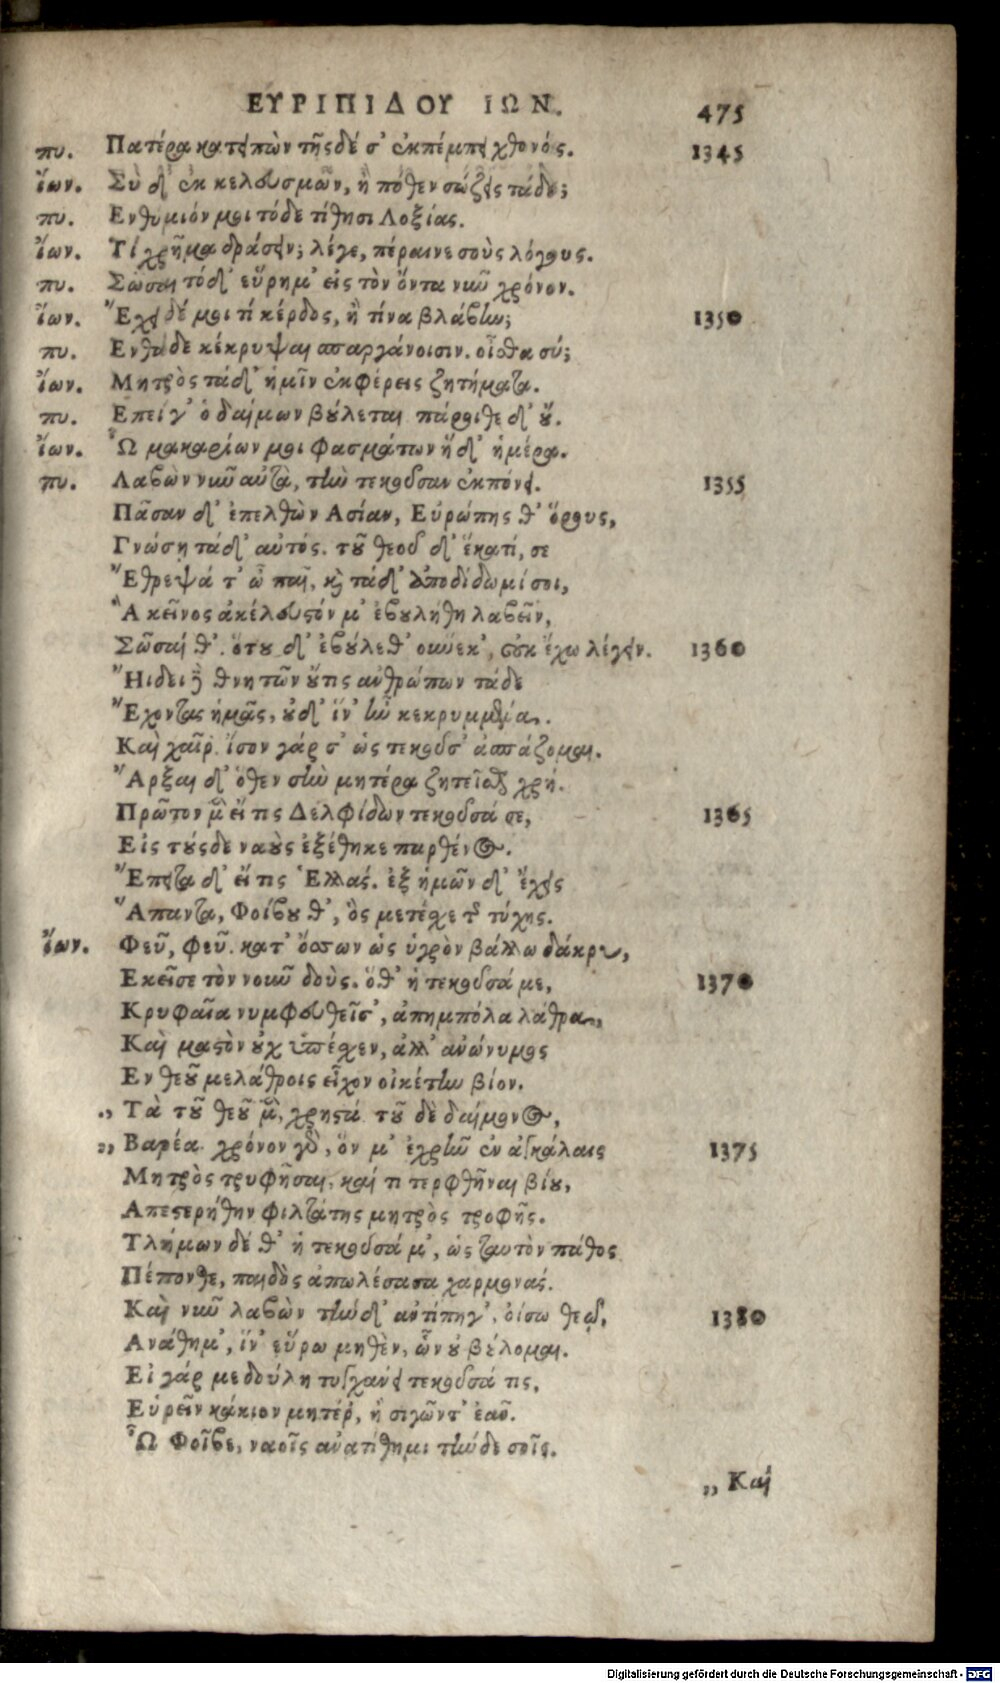 ΕΥΡΙΠΙΔΟΥ ΙΩΝ. 475
πυ. Πατέρα κατειπὼν τῆςδέ σ' ἐκπέμπει χθονός. 1345
ἴων. Σὺ δ' ἐκ κελευσμῶν, ἢ πόθεν σώζεις τάδε;
πυ. Ενθύμιόν μοι τόδε τίθησι Λοξίας.
ἴων. Τί χρῆμα δράσειν; λέγε, πέραινε σοὺς λόγους.
πυ. Σῶσαι τόδ' εὕρημ' εἰς τὸν ὄντα νῦν χρόνον.
ἴων. Ἔχει δέ μοι τί κέρδος, ἢ τίνα βλάβην; 1350
πυ. Ενθάδε κέκρυψαι σπαργάνοισιν. οἶσθα σύ;
ἴων. Μητρὸς τάδ' ἡμῖν ἐκφέρεις ζητήματα.
πυ. Επεί γ' ὁ δαίμων βούλεται πάροιθε δ' οὔ.
ἴων. Ὦ μακαρίων μοι φασμάτων ἥδ' ἡμέρα.
πυ. Λαβὼν νῦν αὐτὰ, τὴν τεκοῦσαν ἐκπόνει. 1355
Πᾶσαν δ' ἐπελθὼν Ασίαν, Εὐρώπης θ' ὅρους,
Γνώσῃ τάδ' αὐτός. τοῦ θεοῦ δ' ἕκατί, σε
Ἔθρεψά τ' ὦ παῖ, καὶ τάδ' ἀποδίδωμί σοι,
Ἃ κεῖνος ἀκέλευστόν μ' ἐβουλήθη λαβεῖν,
Σῶσαί θ'. ὅτου δ' ἐβούλεθ' οὕνεκ', οὐκ ἔχω λέγειν. 1360
Ἤιδει δὲ θνητῶν οὔτις ἀνθρώπων τάδε
Ἔχοντας ἡμᾶς, οὐδ' ἵν' ἦν κεκρυμμένα.
Καὶ χαῖρ'. ἴσον γάρ σ' ὡς τεκοῦσ' ἀσπάζομαι.
Ἄρξαι δ' ὅθεν σὴν μητέρα ζητεῖσθαι χρή.
Πρῶτον μὲν εἴ τις Δελφίδων τεκοῦσά σε, 1365
Εἰς τούςδε ναοὺς ἐξέθηκε παρθένος.
Ἔπειτα δ' εἴ τις Ἑλλάς. ἐξ ἡμῶν δ' ἔχεις
Ἅπαντα, Φοίβου θ', ὃς μετέσχε τῆς τύχης.
ἴων. Φεῦ, φεῦ. κατ' ὄσσων ὡς ὑγρὸν βάλλω δάκρυ,
Εκεῖσε τὸν νοῦν δοὺς. ὅθ' ἡ τεκοῦσά με, 1370
Κρυφαῖα νυμφευθεῖσ', ἀπημπόλα λάθρα,
Καὶ μαστὸν οὐχ ὑπέσχεν, ἀλλ' ἀνώνυμος
Εν θεοῦ μελάθροις εἶχον οἰκέτην βίον.
„ Τὰ τοῦ θεοῦ μὲν, χρηστά τοῦ δὲ δαίμονος,
„ Βαρέα. χρόνον γὰρ, ὅν μ' ἐχρῆν ἐν ἀγκάλαις 1375
Μητρὸς τρυφῆσαι, καί τι τερφθῆναι βίου,
Απεστερήθην φιλτάτης μητρὸς τροφῆς.
Τλήμων δέ θ' ἡ τεκοῦσά μ', ὡς ταυτὸν πάθος
Πέπονθε, παιδὸς ἀπολέσασα χαρμονάς.
Καὶ νῦν λαβὼν τήνδ' ἀντίπηγ', οἴσω θεῷ, 1380
Ανάθημ', ἵν' εὕρω μηθὲν, ὧν οὐ βούλομαι.
Εἰ γάρ με δούλη τυγχάνει τεκοῦσά τις,
Εὑρεῖν κάκιον μητέρ', ἢ σιγῶντ' ἐᾶν.
Ὦ Φοῖβε, ναοῖς ἀνατίθημι τήνδε σοῖς.
„ Καὶ
Digitalisierung gefördert durch die Deutsche Forschungsgemeinschaft - DFG